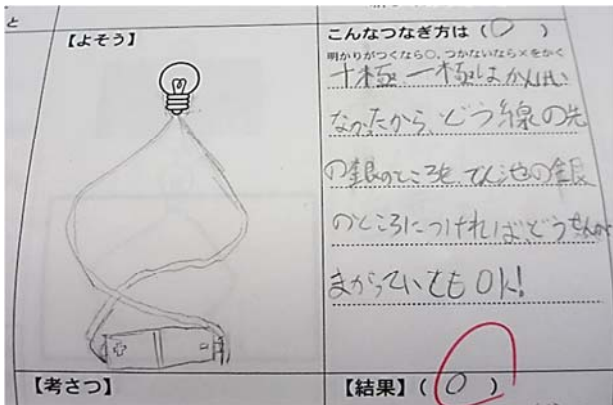 と
【よそう】
こんなつなぎ方は（○）
明かりがつくなら○、つかないなら×をかく
十極一極はかんけい
なかったから、どう線の先
の銀のところを、でん池の銀
のところにつければ、どうせんが
まがっていてもOK!
+ -
【考さつ】
【結果】（○）